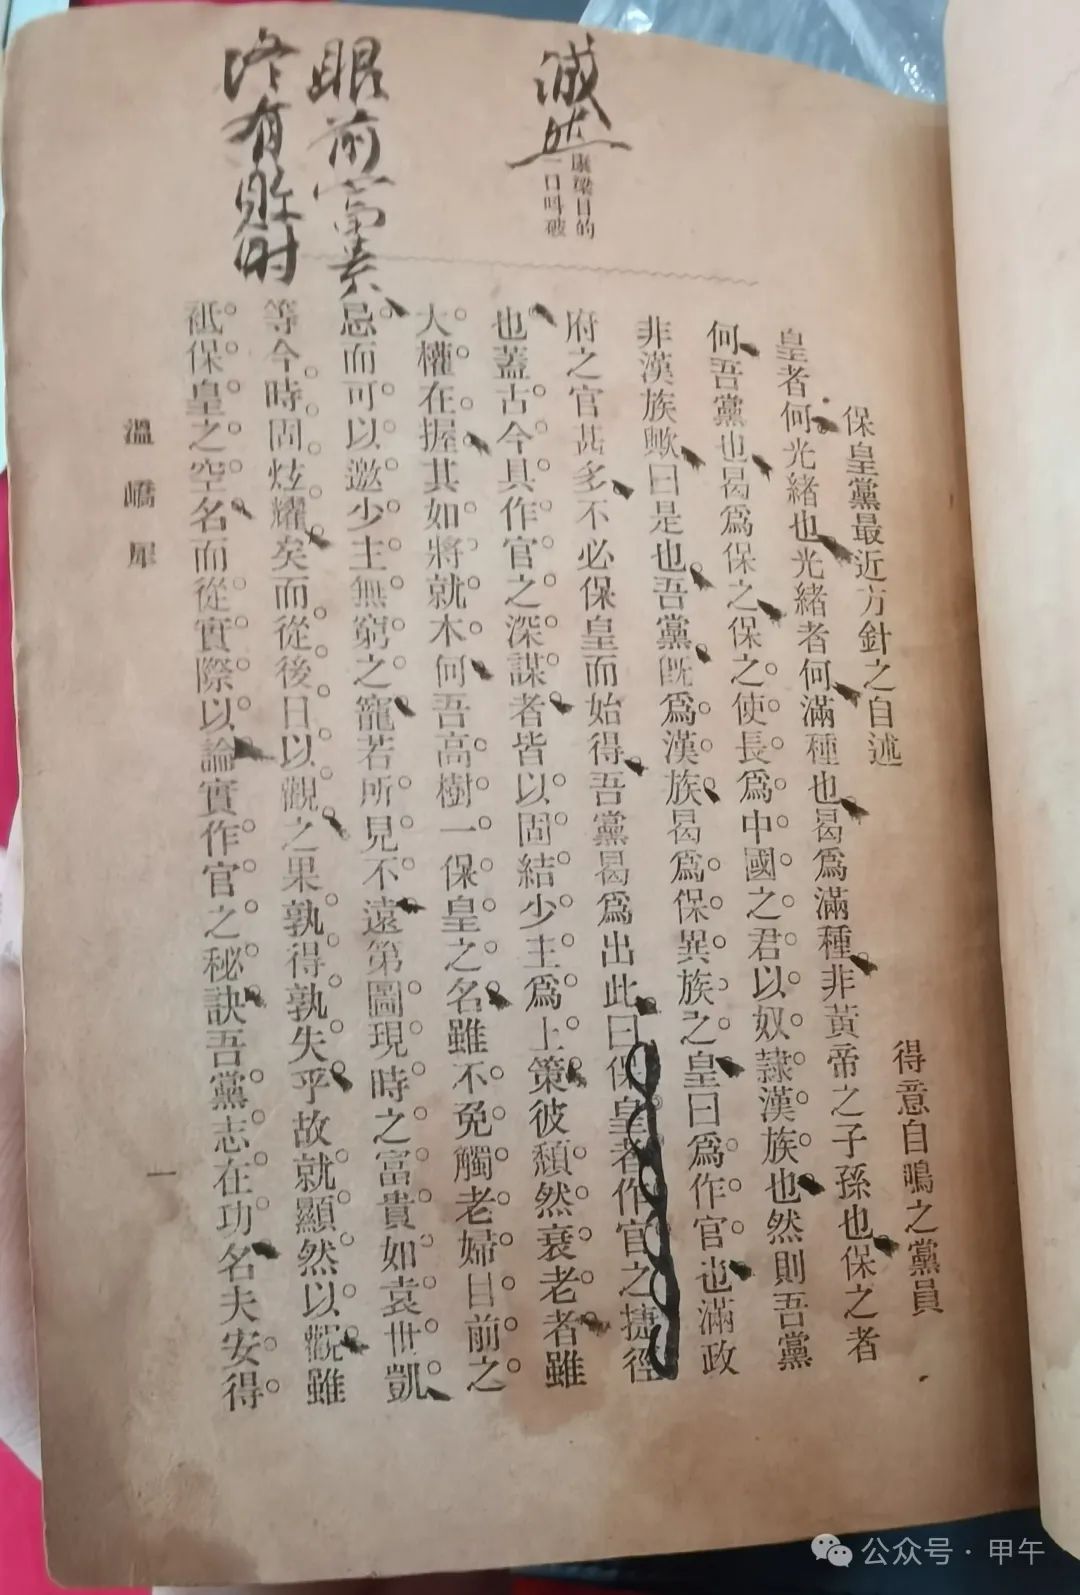 保皇黨最近方針之自述
得意自鳴之黨員
皇者何光緒也光緒者何滿種也曷爲滿種非黃帝之子孫也保之者
何吾黨也曷爲保之保之使長爲中國之君以奴隷漢族也然則吾黨
非漢族歟曰是也吾黨旣爲漢族曷爲保異族之皇曰爲作官也滿政
府之官甚多不必保皇而始得吾黨曷爲出此曰保皇者作官之捷徑
也蓋古今具作官之深謀者皆以固結少主爲上策彼頹然衰老者雖
大權在握其如將就木何吾高樹一保皇之名雖不免觸老婦目前之
忌而可以邀少主無窮之寵若所見不遠第圖現時之富貴如袁世凱
等今時固炫耀矣而從後日以觀之果孰得孰失乎故就顯然以觀雖
祗保皇之空名而從實際以論實作官之秘訣吾黨志在功名夫安得
康梁目的
一口呌破
誠然
眼前富貴
終有敗時
溫嶠犀
一
公众号·甲午